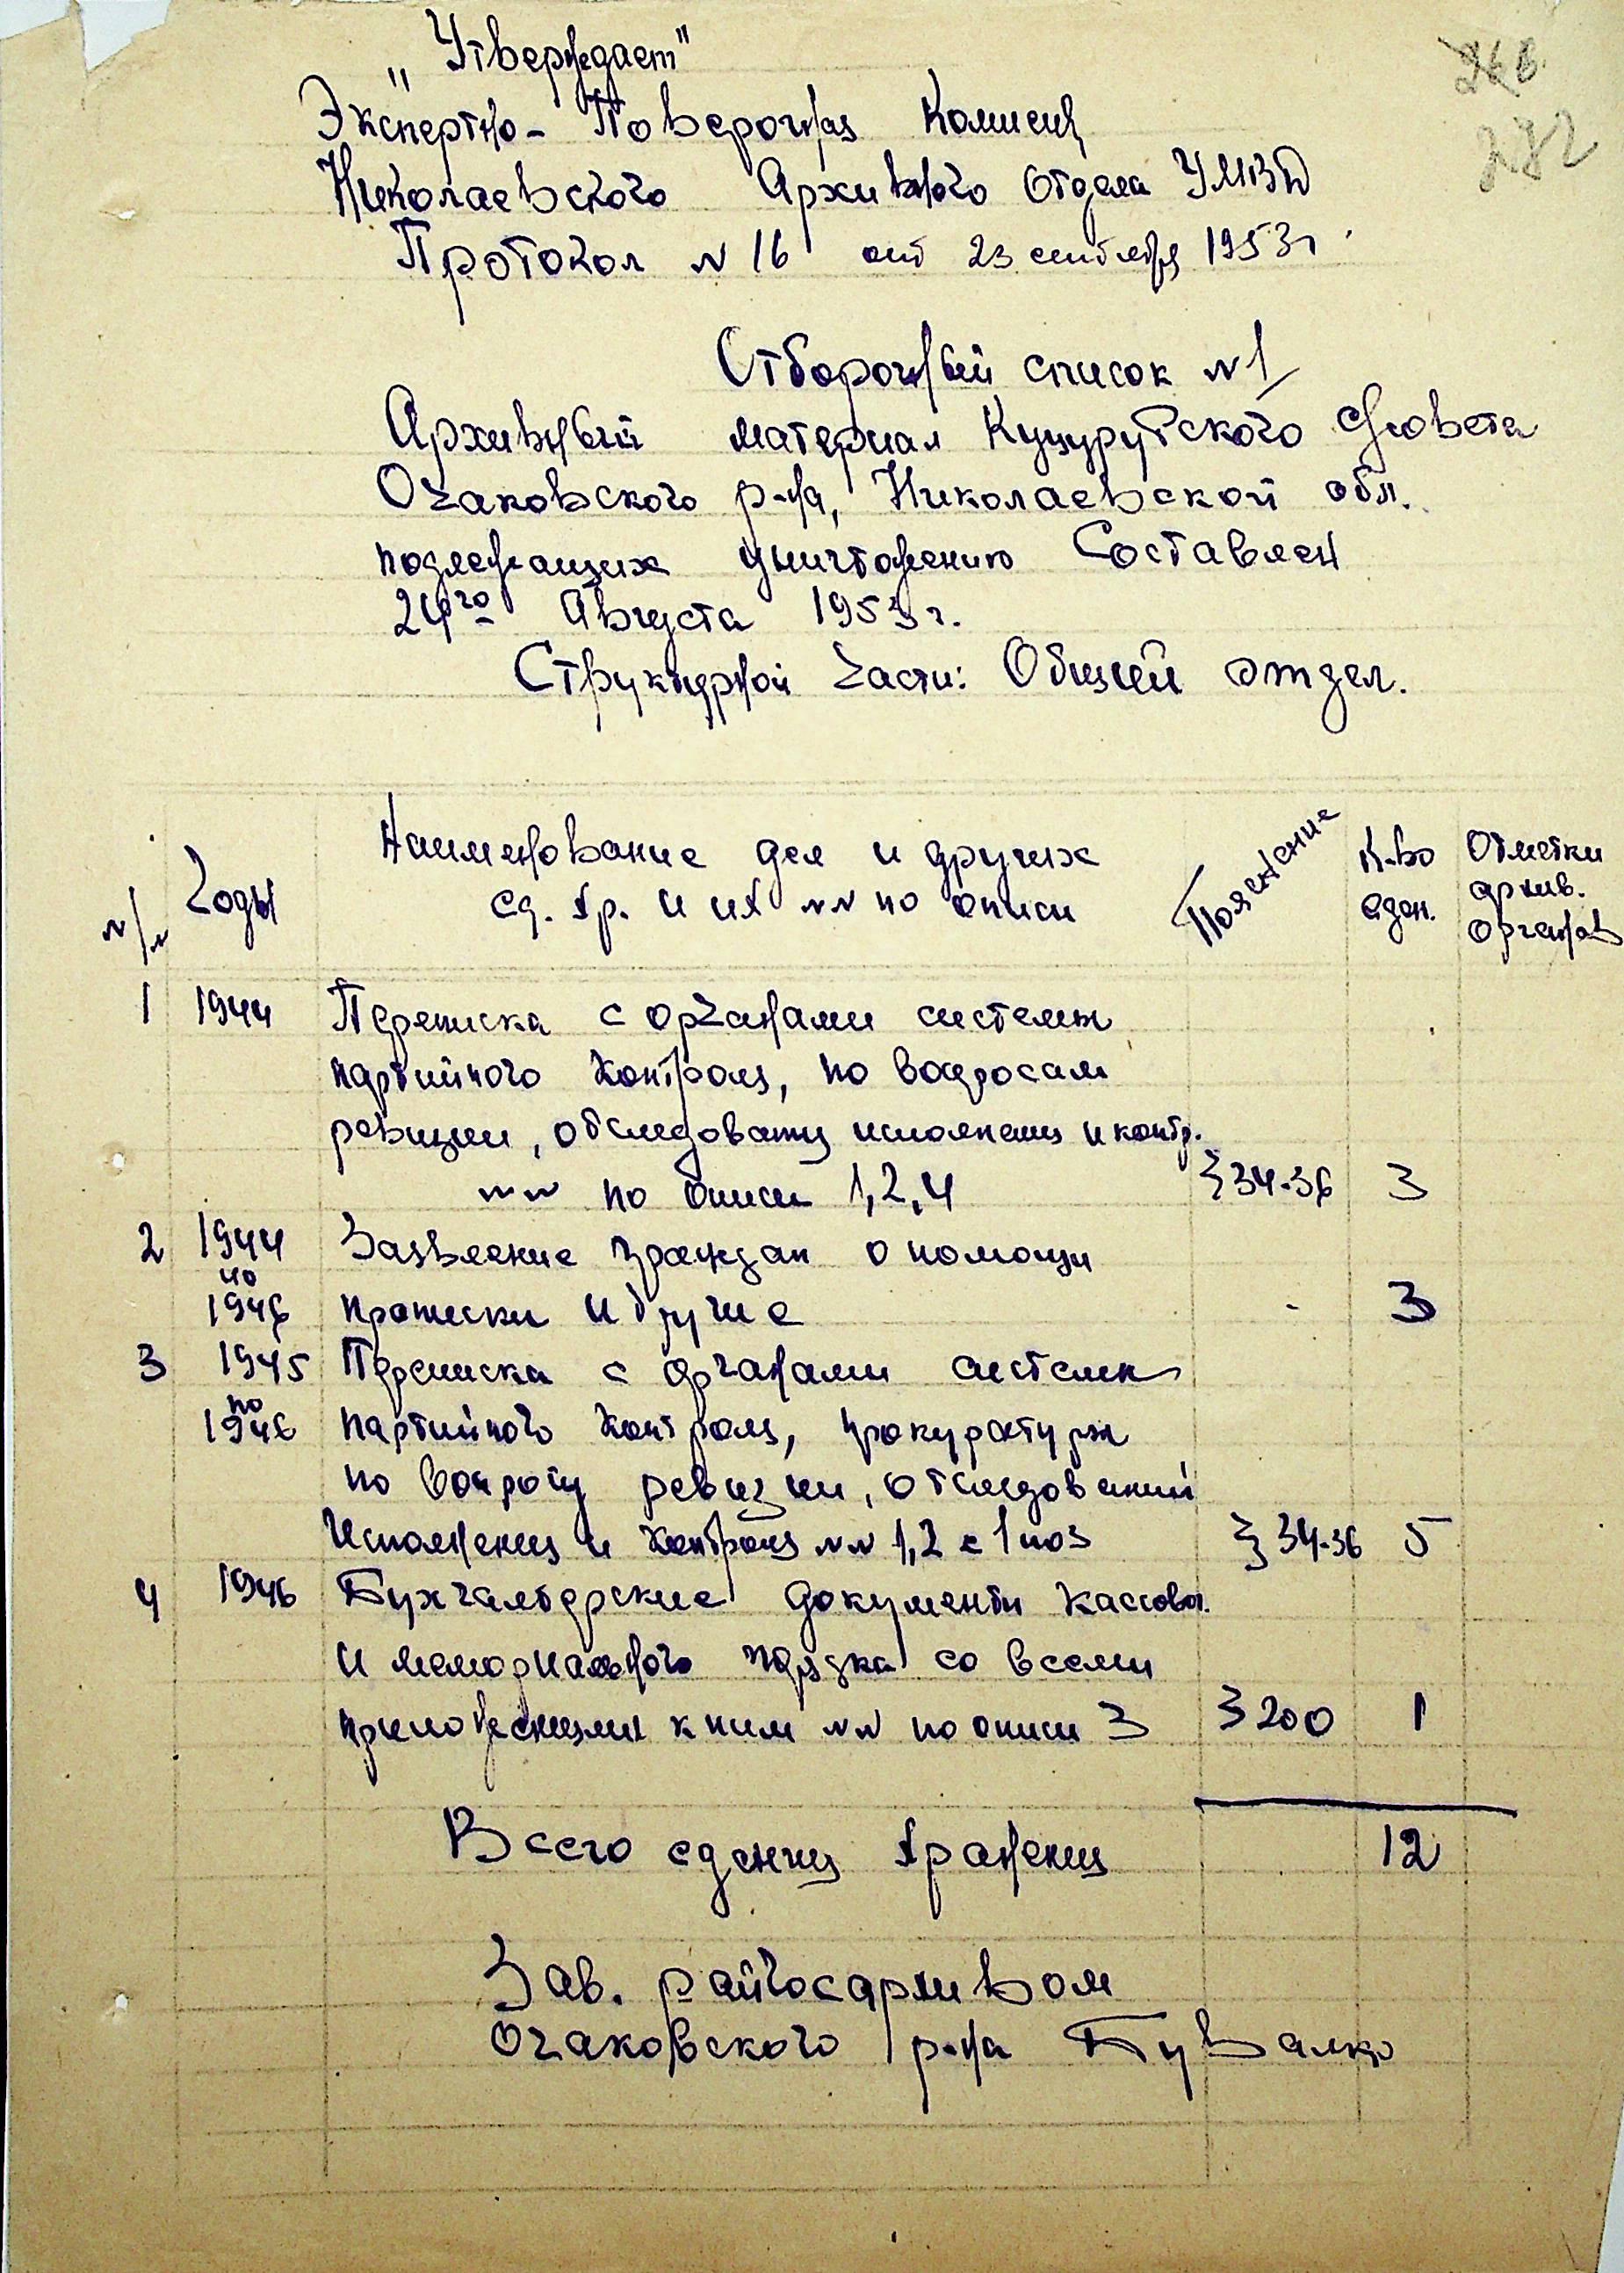 „Утверждает"
Экспертно-Поверочная Комисия
Николаевского Архивного отдела УМВД
Протокол № 16 от 23 сентября 1953 г.
Отборочный список № 1
Архивный материал Куцурубского с/совета
Очаковского р-на, Николаевской обл.
подлежащих уничтожению Составлен
24го Августа 1953 г.
Структурной части: Общей отдел.
№/№ Годы Наименование дел и других Пояснение К-во Отметки
ед. хр. и их №№ по описи един. архив.
органов
1 1944 Переписка с органами системы
партийного контроля, по вопросам
ревизии, обследования исполнения и контр.
№№ по описи 1, 2, 4 § 34-36 3
2 1944 Заявление граждан о помощи
по
1946 прописки и другие - 3
3 1945 Переписка с органами системы
по
1946 партийного контроля, прокуратуры
по вопросу ревизии, обследований
Исполнения и контроля №№ 1, 2 с 1 по 3 § 34-36 5
4 1946 Бухгалтерские документы кассового
и мемориального порядка со всеми
приложениями к ним №№ по описи 3 § 200 1
Всего единиц хранения 12
Зав. райгосархивом
Очаковского р-на